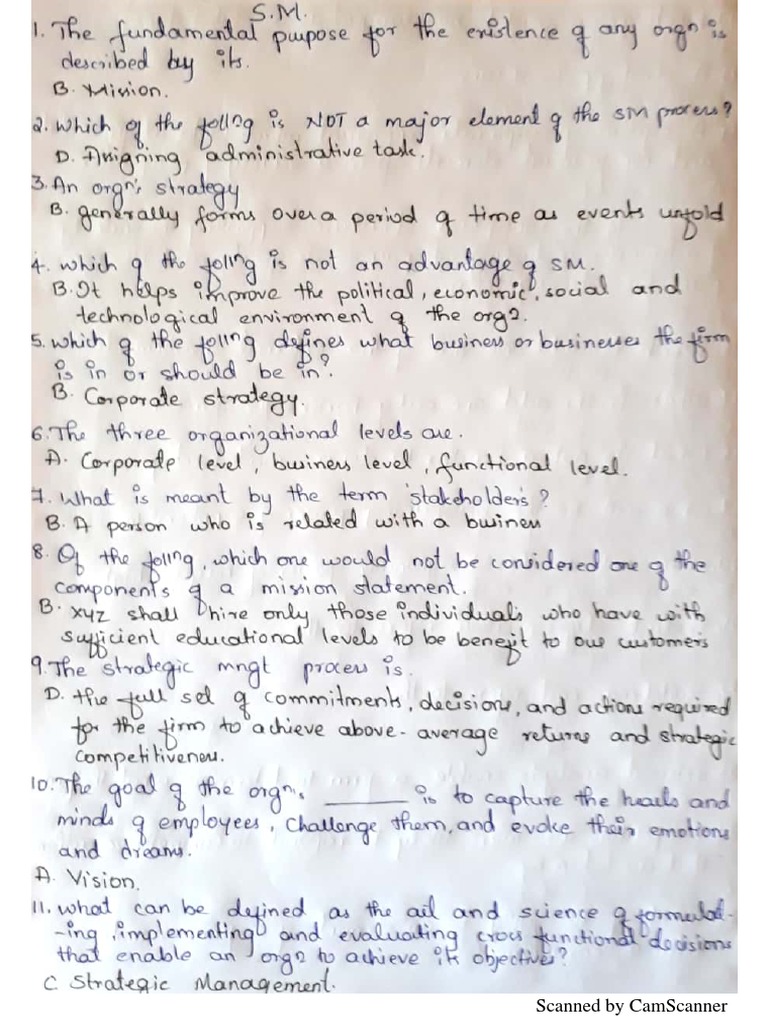 S.M.
1. The fundamental purpose for the existence of any orgn is
described by its.
B. Mission.
2. Which of the follng is NOT a major element of the SM process?
D. Assigning administrative task.
3. An orgn's strategy
B. generally forms over a period of time as events unfold
4. which of the follng is not an advantage of SM.
B. It helps improve the political, economic, social and
technological environment of the orgn.
5. which of the follng defines what business or businesses the firm
is in or should be in?
B. Corporate strategy.
6. The three organizational levels are.
A. Corporate level, business level, functional level.
7. What is meant by the term 'stakeholders'?
B. A person who is related with a business
8. Of the follng, which one would not be considered one of the
components of a mission statement.
B. xyz shall hire only those individuals who have with
sufficient educational levels to be benefit to our customers
9. The strategic mngt process is.
D. the full set of commitments, decisions, and actions required
for the firm to achieve above-average returns and strategic
competitiveness.
10. The goal of the orgn's ______ is to capture the hearts and
minds of employees, challenge them, and evoke their emotions
and dreams.
A. Vision.
11. what can be defined as the art and science of formulat-
-ing, implementing and evaluating cross functional decisions
that enable an orgn to achieve its objective?
C. Strategic Management.
Scanned by CamScanner